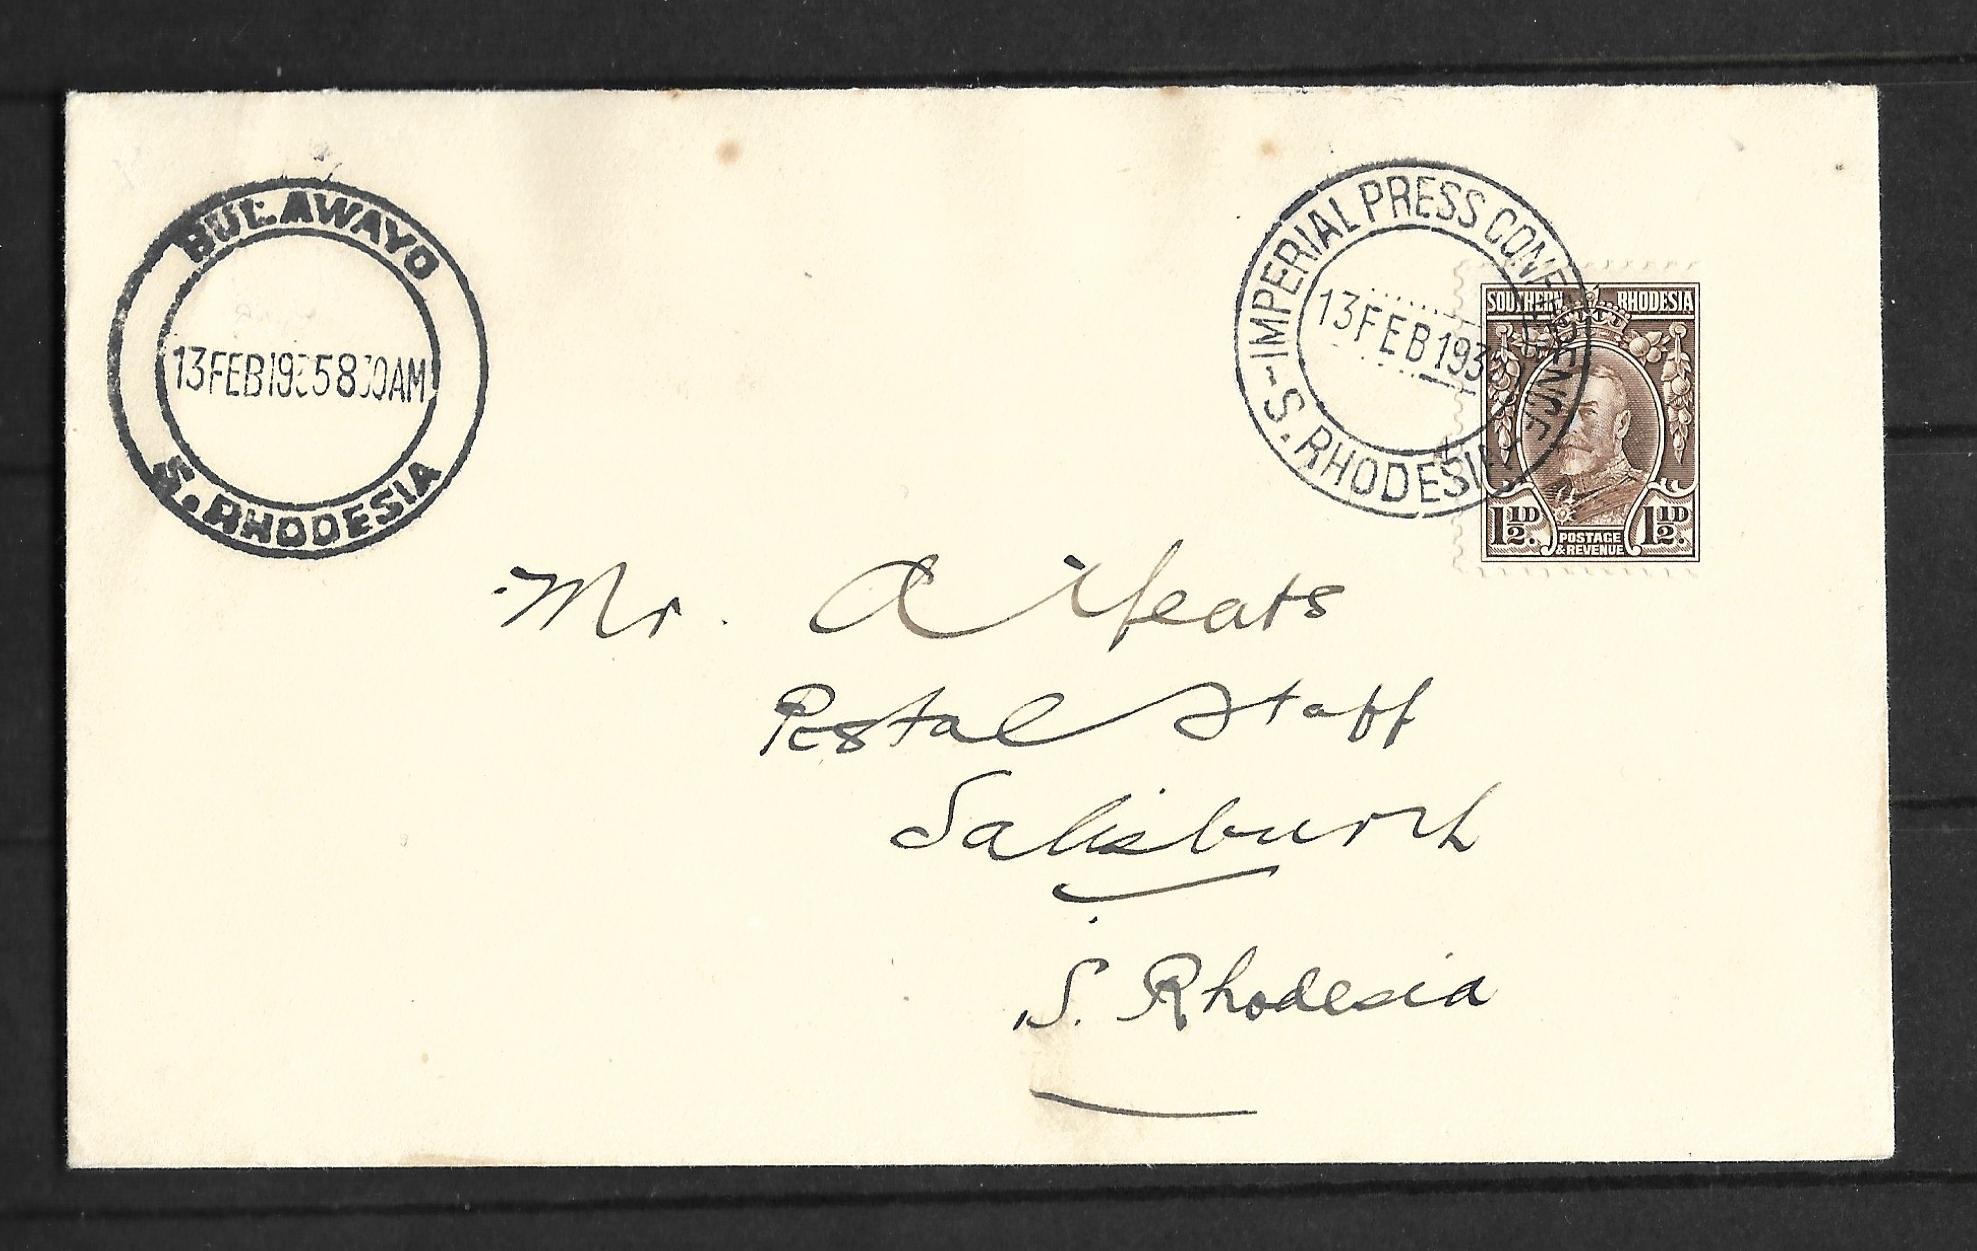 BULAWAYO
13 FEB 1935 8 30 AM
S. RHODESIA
IMPERIAL PRESS CONFERENCE
13 FEB 1935
S. RHODESIA
SOUTHERN RHODESIA
1½D. POSTAGE & REVENUE 1½D.
Mr. A Yeats
Postal Staff
Salisbury
S. Rhodesia